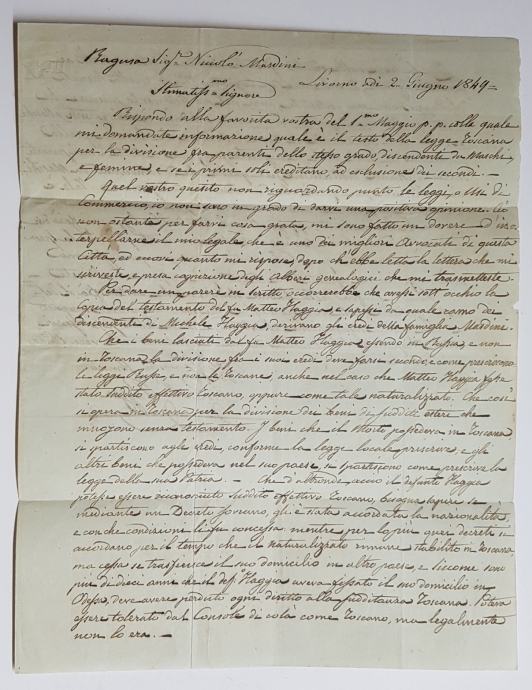 Ragusa Sigr Nicolò Mardini
Livorno addì 2 Giugno 1849
Stimatissmo Signore
Rispondo alla favorita vostra del 1mo Maggio p. p. colla quale
mi domandate informazione quale è il testo della legge Toscana
per la divisione fra parenti dello stesso grado, discendenti da Maschi
e femmine, e se i primi soli creditano ad esclusione dei secondi. -
quel vostro quesito non riguardando punto le leggi o Usi di
Commercio, io non sono in grado di darvi una positiva opinione. Ciò
non ostante per farvi cosa grata, mi sono fatto un dovere d'in
terpellarne il mio legale che è uno dei migliori Avvocati di questa
Città, ed eccovi quanto mi rispose, dopo che ebbe letta la lettera che mi
scriveste, e presa cognizione degli Alberi genealogici che mi trasmetteste.
Per dare un parere in scritto occorrerebbe che avessi sott'occhio la
copia del testamento del fu Matteo Flaggia, e sapessi da quale ramo dei
discendenti di Michele Flaggia, derivano gli eredi della famiglia Mardini.
Che i beni lasciati dal fu Matteo Flaggia, essendo in Russia, e non
in Toscana, la divisione fra i suoi eredi deve farsi secondo, e come prescrivono
le leggi Russe, e non le Toscane, anche nel caso che Matteo Flaggia fosse
stato suddito effettivo Toscano, oppure come tale naturalizzato. Che così
si opera in Toscana per la divisione dei beni di sudditi esteri che
muojono senza testamento. I beni che il Morto possedeva in Toscana
si spartiscono agli eredi, conforme la legge locale prescrive, e gli
altri beni che possedeva nel suo paese, si spartiscono come prescrive la
legge della sua Patria. - Che d'altronde acciò il defunto Flaggia
potesse essere riconosciuto suddito effettivo Toscano, bisogna sapere se
mediante un Decreto Sovrano, gli è stata accordata la nazionalità,
e con che condizioni li fu concessa, mentre per lo più quei decreti si
accordano per il tempo che il naturalizzato rimane stabilito in Toscana
ma cessa se trasferisce il suo domicilio in altro paese, e siccome sono
più di dieci anni che il defo Flaggia aveva fissato il suo domicilio in
Odessa, deve avere perduto ogni diritto alla sudditanza Toscana. Poteva
essere tolerato dal Console di colà come Toscano, ma legalmente
non lo era. -